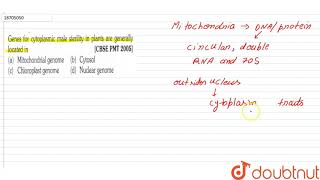 18705050
Genes for cytoplasmic male sterility in plants are generally
located in [CBSE PMT 2005]
(a) Mitochondrial genome (b) Cytosol
(c) Chloroplast genome (d) Nuclear genome
Mitochondria → DNA/protein
circular, double
RNA and 70S
outside nucleus
↓
cytoplasm traits
doubtnut